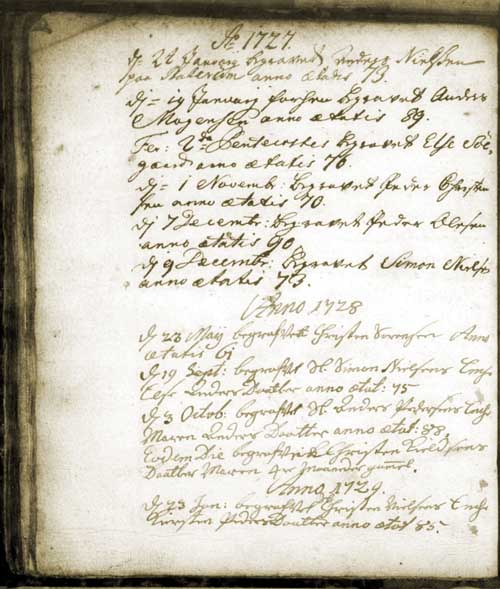 Aō 1727.
dj 22 Januarij begravet Anders Nielsen
paa anno ætatis 73.
dj = 19 Januarij begravet Anders
Mogensen anno ætatis 89.
Fer: 2da Pentecostes begravet Else Søe-
gaard anno ætatis 76.
dj = 1 Novembr: begravet Peder Christen
sen anno ætatis 70.
dj 7 Decembr: begravet Peder Olesen
anno ætatis 90
dj 9 Decembr: begravet Simon Nielsen
anno ætatis 73.
Anno 1728
dj 23 Maij begrafvet Christen Sørensen Anno
ætatis 61
dj 19 Sept: begrafvet Sl. Simon Nielsens Enche
Else Anders Daatter anno ætat: 75
dj 3 Octob: begrafvet Sl. Anders Pedersens Enche
Maren Anders Daatter anno ætat: 88
Eodem Die begrafvet Christen Kieldsens
Daatter Maren, 4er Maaneder gammel.
Anno 1729
dj 23 Jan: begrafvet Christen Nielsens Enche
Kiersten Peders Daatter anno ætat 85.